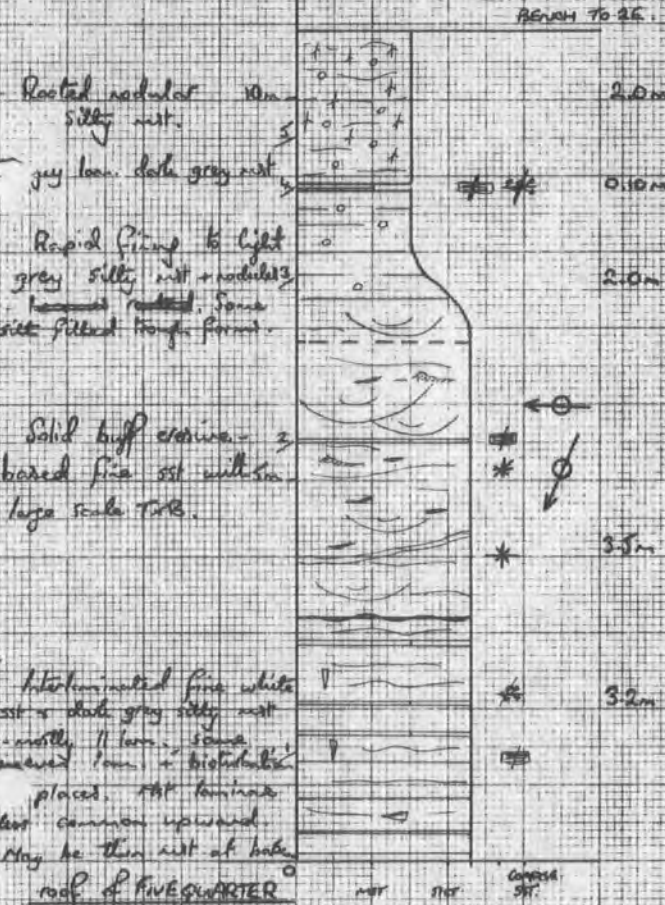 BENCH TO 2E.
Rooted nodular
silty mst.
10m
2.0m
5
grey lam. dark grey mst
4
0.10m
Rapid fining to light
grey silty mst + nodules
3
2.0m
Some
silt filled trough forms.
Solid buff erosive-
2
based fine sst with
5m
large scale TXB.
3.5m
Interlaminated fine white
sst & dark grey silty mst
3.2m
- mostly // lam. some
lam. + bioturbation
places. mst laminae
less common upward.
May be thin mst at base
0
roof of FIVEQUARTER
MST
SST.